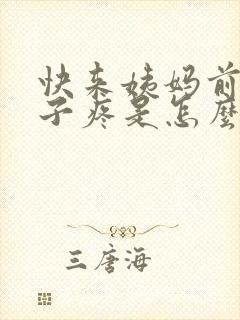 快来姨妈前
子疼是怎麼
三唐海